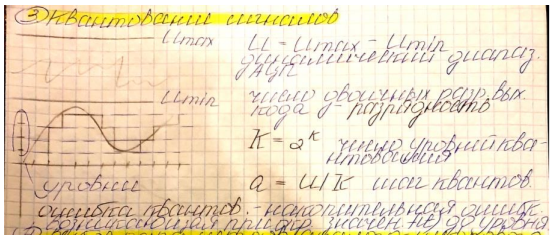 ③ Квантование сигналов
Umax
U = Umax - Umin
динамический диапаз.
АЦП
Umin
число двоичных разр. вых.
кода разрядность
K = 2ᴷ число уровней ква-
нтования
уровни
a = U/K шаг квантов.
ошибка квантов. - накопительная ошибк.